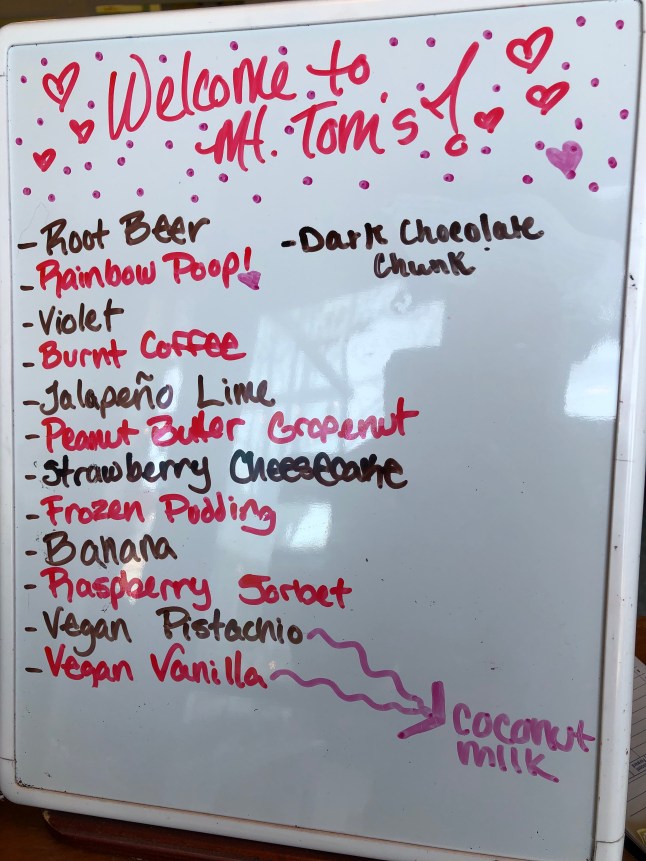 Welcome to
Mt. Tom's!
- Root Beer
- Rainbow Poop!
- Violet
- Burnt Coffee
- Jalapeño Lime
- Peanut Butter Grapenut
- Strawberry Cheesecake
- Frozen Pudding
- Banana
- Raspberry Sorbet
- Vegan Pistachio
- Vegan Vanilla
coconut
milk
- Dark Chocolate
Chunk